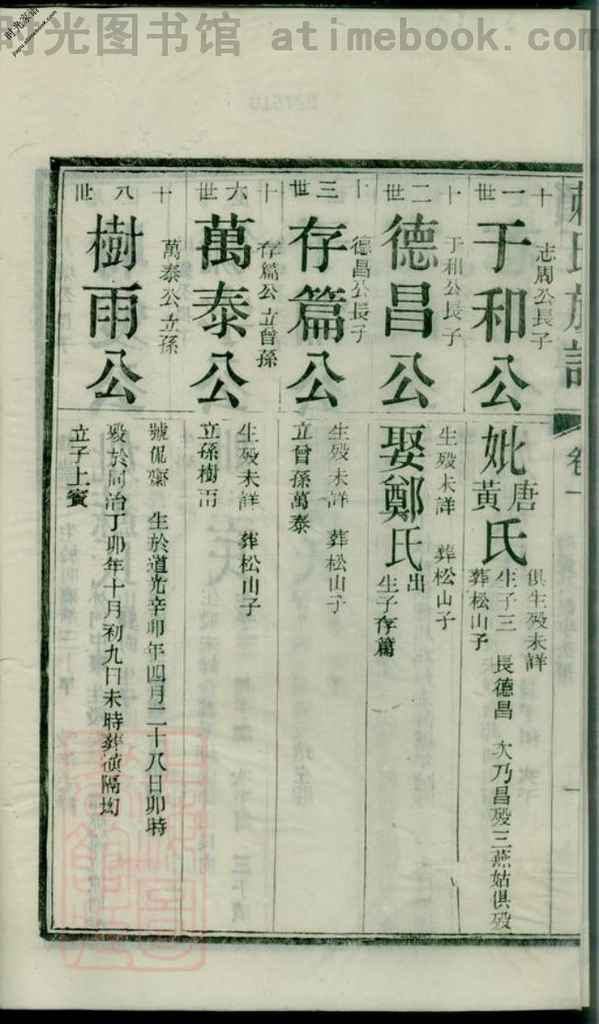 时光图书馆 atimebook.com
时光家谱
www.atimebook.com
氏族譜
卷一
十一世
志周公長子
于和公
妣唐黃氏
俱生殁未詳
生子三 長德昌 次乃昌殁三燕姑俱殁
葬松山子
十二世
于和公長子
德昌公
生殁未詳 葬松山子
娶鄭氏
出
生子存篇
十三世
德昌公長子
存篇公
生殁未詳 葬松山子
立曾孫萬泰
十六世
存篇公立曾孫
萬泰公
生殁未詳 葬松山子
立孫樹雨
十八世
萬泰公立孫
樹雨公
號侃齋 生於道光辛卯年四月二十八日卯時
殁於同治丁卯年十月初九日未時葬隔均
立子上賓